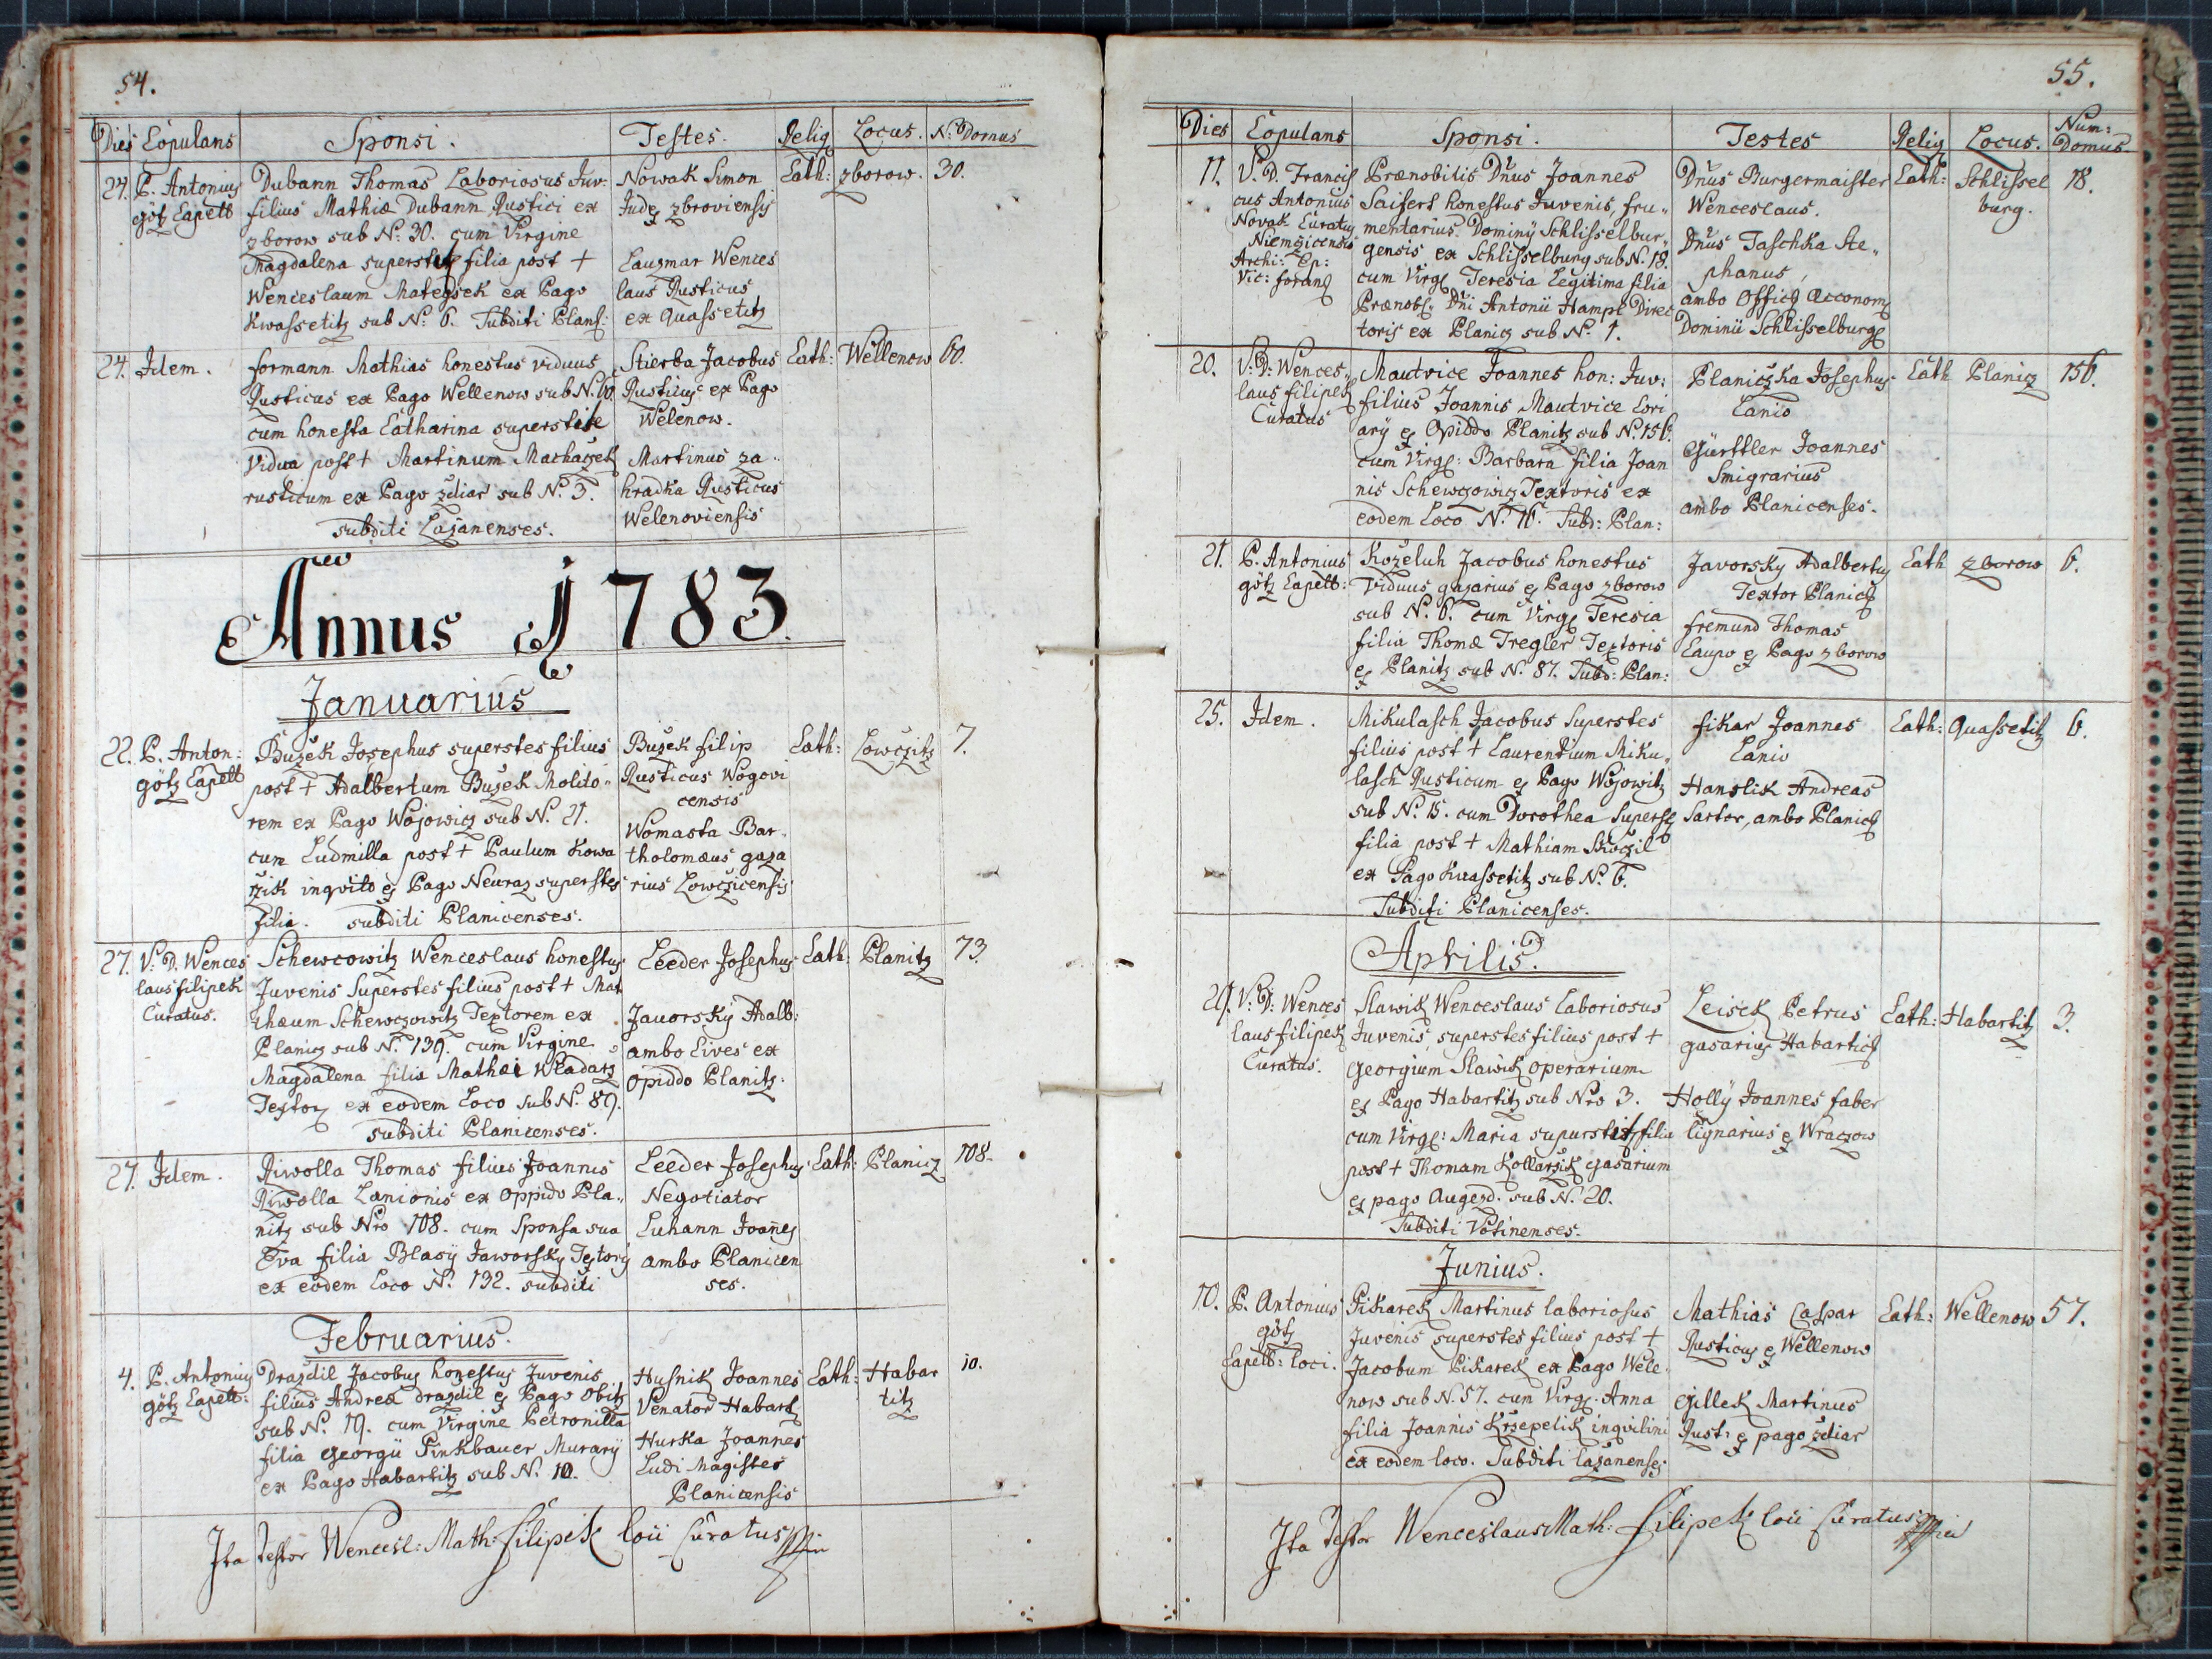 54.
Dies Copulans Sponsi. Testes. Relig Locus. N. Domus
24. P. Antonius götz Capell
Dubann Thomas Laboriosus Juv:
filius Mathiæ Dubann Rustici ex
zborow sub N: 30. cum Virgine
Magdalena superstes filia post +
Wenceslaum Mategsek ex Pago
Kwassetitz sub N: 6. Subditi Plans:
Nowak Simon
Judex zbroviensis
Laugmar Wences
laus Rusticus
ex Quassetitz
Cath: zborow. 30.
24. Idem.
formann Mathias honestus viduus
Rusticus ex Pago Wellenow sub N. 60
cum honesta Catharina superstite
Vidua post + Martinum Machaczek
rusticum ex Pago zdiar sub N. 3.
subditi Lazanenses.
Stierba Jacobus
Rusticus ex Pago
Welenow.
Martinus za
hradka Rusticus
Welenoviensis
Cath: Wellenow 60.
Annus 1783.
Januarius
22. P. Anton:
götz Capell
Buzek Josephus superstes filius
post + Adalbertum Buzek Molito
rem ex Pago Wojowicz sub N. 21.
cum Ludmilla post + Paulum Kowa
rzik inqvito ex Pago Neuraz superstes
filia. subditi Planicenses.
Buzek filip
Rusticus Wogovi
censis
Womasta Bar
tholomæus gaza
rius Lowczicensis
Cath: Lowczitz 7.
27. V. D. Wences
laus filipek
Curatus.
Schewcowitz Wenceslaus honestus
Juvenis Superstes filius post + Mat
thæum Schewczowitz Textorem ex
Planicz sub N. 139. cum Virgine
Magdalena filia Mathæi Wladarz
Textor ex eodem Loco sub N. 89.
subditi Planicenses.
Leeder Josephus
Javorsky Adalb:
ambo Cives ex
opiddo Planitz.
Cath: Planitz 73.
27. Idem.
Riwolla Thomas filius Joannis
Riwolla Lanionis ex oppido Pla
nitz sub Nro 108. cum Sponsa sua
Eva filia Blasÿ Jaworsky Textoris
ex eodem Loco N. 132. subditi
Leeder Josephus
Negotiator
Luhann Joanes
ambo Planicen
ses.
Cath: Planicz 108.
Februarius.
4. P. Antonius
götz Capell:
Drazdil Jacobus honestus Juvenis
filius Andreæ drazdil ex Pago Obitz
sub N. 19. cum Virgine Petronilla
filia georgii Pinkbauer Murarÿ
ex Pago Habartitz sub N. 10.
Husnik Joannes
Venator Habart
Hurka Joannes
Ludi Magister
Planicensis
Cath: Habar
titz
10.
Ita testor Wencesl: Math: filipek loci Curatus
55.
Dies Copulans Sponsi. Testes Relig Locus. Num: Domus
11. V. D. Francis
cus Antonius
Novak Curatus
Niemczicensis
Archi: Ep:
Vic: foran
Prænobilis Dnus Joannes
Saifert honestus Juvenis, fru
mentarius Dominÿ Schlisselbur
gensis ex Schlisselburg sub N. 18.
cum Virg Teresia Legitima filia
Prænob. Dni Antonii Hampl Direc
toris ex Planicz sub N. 1.
Dnus Burgermaister
Wenceslaus.
Dnus Taschka Ste
phanus,
ambo Offic œconom
Dominii Schlisselburg
Cath: Schlissel
burg.
18.
20. V. D. Wences
laus filipek
Curatus
Mautvice Joannes hon: Juv:
filius Joannis Mautvice Lori
arÿ ex Opiddo Planitz sub N. 156.
cum Virg: Barbara filia Joan
nis Schewczowicz Textoris ex
eodem Loco N. 16. Subd: Plan:
Planiczka Josephus
Lanio
Gürttler Joannes
Smigrarius
ambo Planicenses.
Cath Planicz 156.
21. P. Antonius
götz Capell:
Kozeluh Jacobus honestus
Viduus gazarius ex Pago zborow
sub N. 6. cum Virg Teresia
filia Thomæ Tregler Textoris
ex Planitz sub N. 87. Subd: Plan:
Javorsky Adalbertus
Textor Planic
fremund Thomas
Caupo ex Pago zborow
Cath zborow 6.
25. Idem.
Mikulasch Jacobus Superstes
filius post + Laurentium Miku
lasch Rusticum ex Pago Wojowitz
sub N. 15. cum Dorothea Superst
filia post + Mathiam Skoczil
ex Pago Kwassetitz sub N. 6.
Subditi Planicenses.
fikar Joannes
Lanio
Hanslik Andreas
Sartor, ambo Planic
Cath: Quassetitz 6.
Aprilis.
29. V. D. Wences
laus filipek
Curatus.
Slawik Wenceslaus Laboriosus
Juvenis, superstes filius post +
georgium Slawik operarium
ex Pago Habartitz sub Nro 3.
cum Virg: Maria superstes filia
post + Thomam Kollarzik gasarium
ex pago Augezd. sub N. 20.
Subditi Votinenses.
Leisek Petrus
gasarius Habartic
Hollÿ Joannes faber
lignarius ex Wraczow
Cath: Habartitz 3.
Junius.
10. P. Antonius
götz
Capell: loci.
Pikarek Martinus laboriosus
Juvenis superstes filius post +
Jacobum Pikarek ex Pago Wele
now sub N. 57. cum Virg: Anna
filia Joannis Krzepelik inqvilini
ex eodem loco. Subditi lazanenses
Mathias Caspar
Rusticus ex Wellenow
gillek Martinus
Rust: ex pago zdiar
Cath: Wellenow 57.
Ita testor Wenceslaus Math: filipek loci Curatus